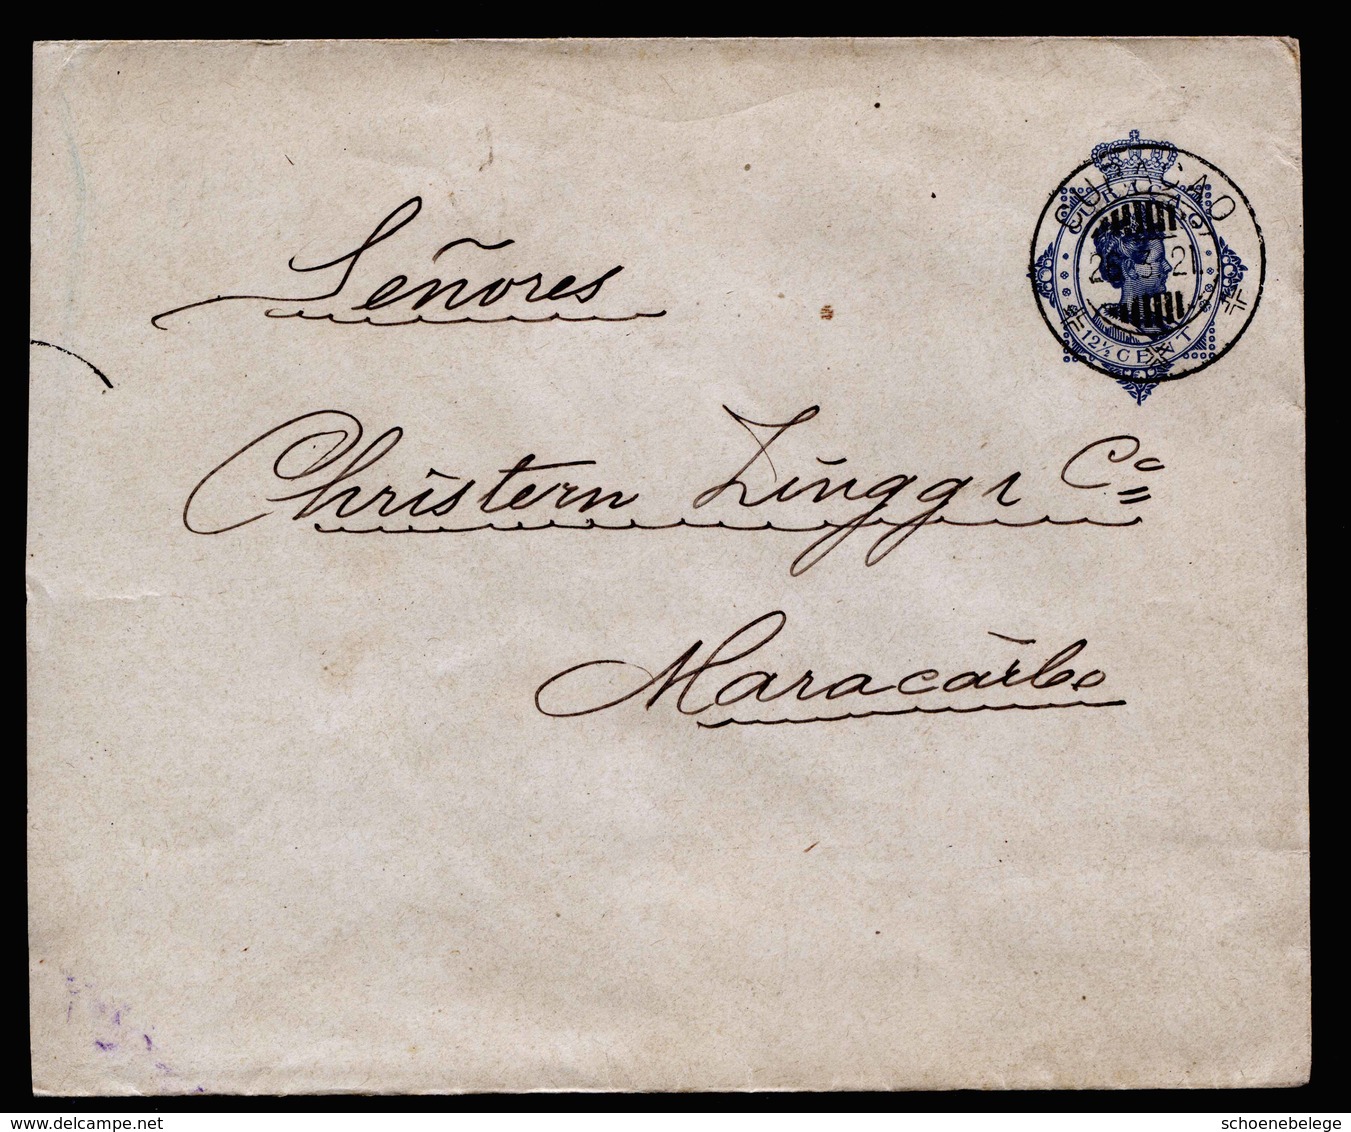 CURAÇAO
CURAÇAO
21
12½ CENT
Señores
Christern Zingg & Co
Maracaibo
delcampe.net
schoenebelege